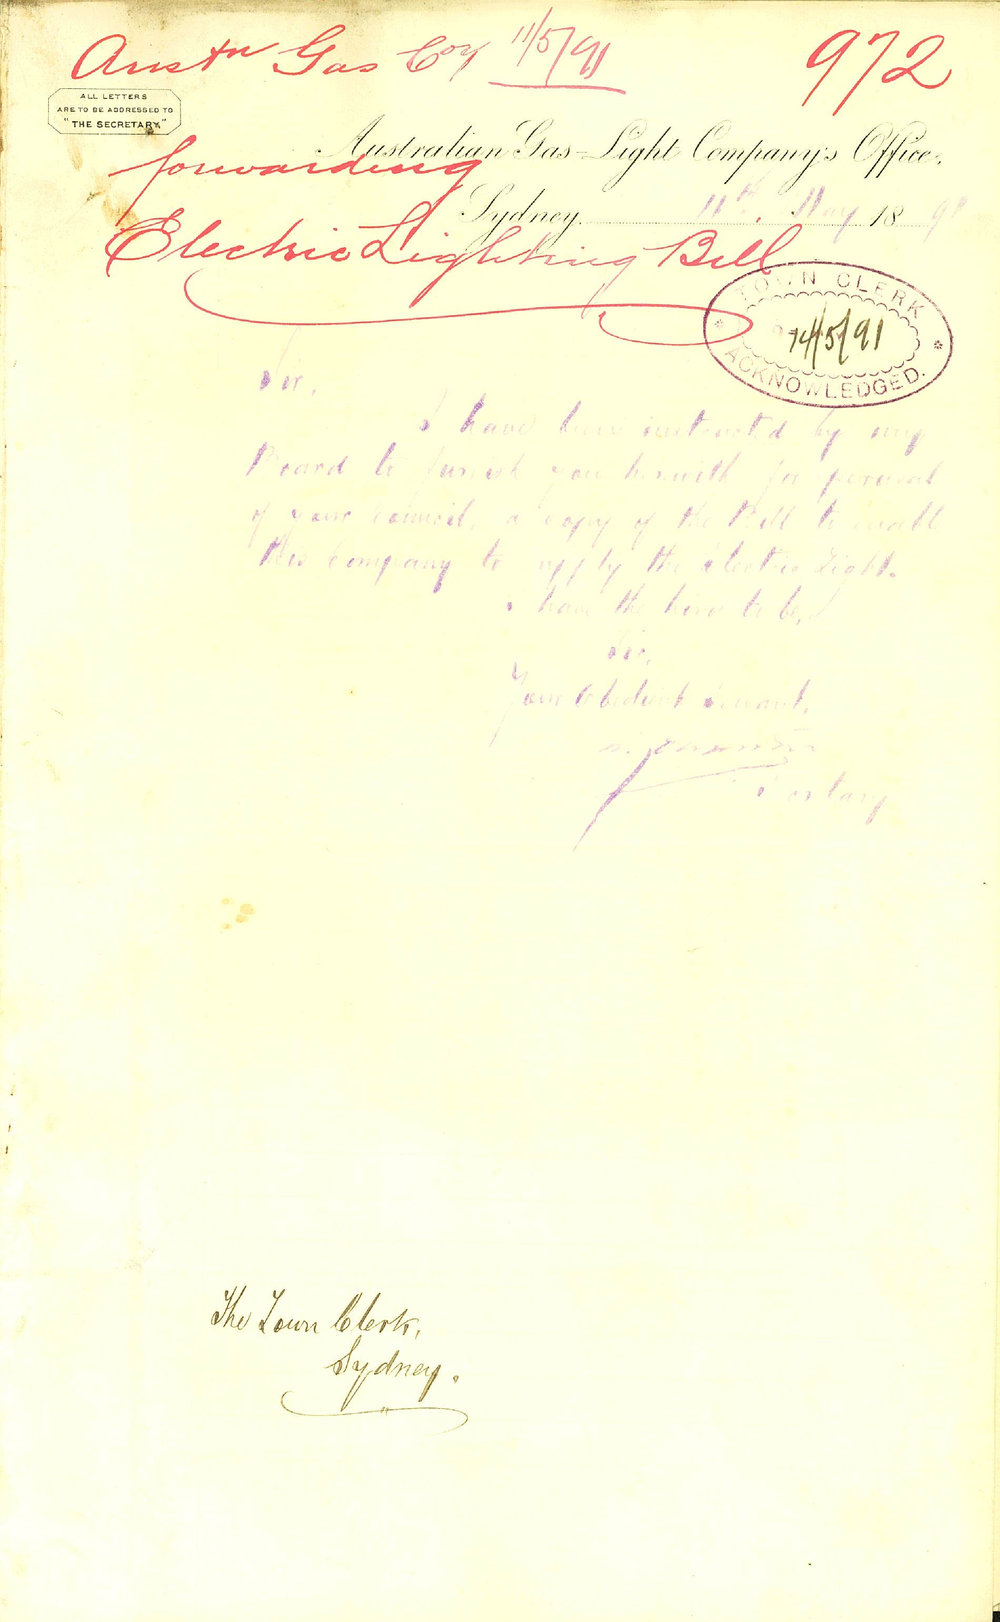 Austn Gas Coy 11/5/91
972
ALL LETTERS
ARE TO BE ADDRESSED TO
"THE SECRETARY."
Australian Gas-Light Company's Office.
forwarding
Sydney 11th. May 1891
Electric Lighting Bill
TOWN CLERK
14/5/91
ACKNOWLEDGED.
Sir,
I have been instructed by my
Board to furnish you herewith for perusal
of your Council, a copy of the Bill to enable
this Company to apply the Electric Light.
I have the honor to be,
Sir,
Your Obedient Servant,
Secretary
The Town Clerk,
Sydney.